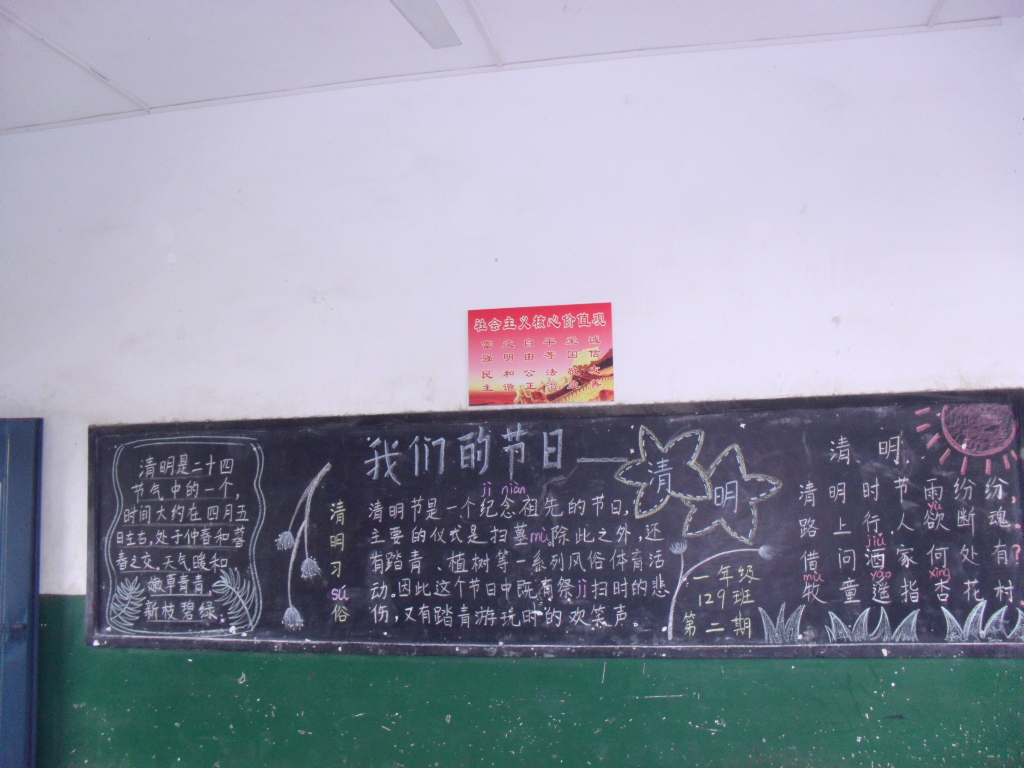 社会主义核心价值观
富 文 自 平 爱 诚
强 明 由 等 国 信
民 和 公 法 敬 友
主 谐 正 治 业 善
清明是二十四
节气中的一个,
时间大约在四月五
日左右,处于仲春和暮
春之交,天气暖和
嫩草青青,
新枝碧绿。
我们的节日——清明
清明习sú俗
jì niàn
清明节是一个纪念祖先的节日,
主要的仪式是扫墓mù,除此之外,还
有踏青、植树等一系列风俗体育活
动。因此这个节日中既有祭jì扫时的悲
伤,又有踏青游玩时的欢笑声。
一年级
129班
第二期
清 明
清 明 时 节 雨 纷 纷,
yù
路 上 行 人 欲 断 魂。
jiǔ
借 问 酒 家 何 处 有?
mù yáo xìng
牧 童 遥 指 杏 花 村